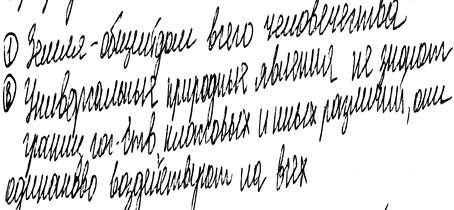 ① Земля - общий дом всего человечества
③ Универсальные природные явления не знают
границ гос-ств, классовых и иных различий, они
одинаково воздействуют на всех